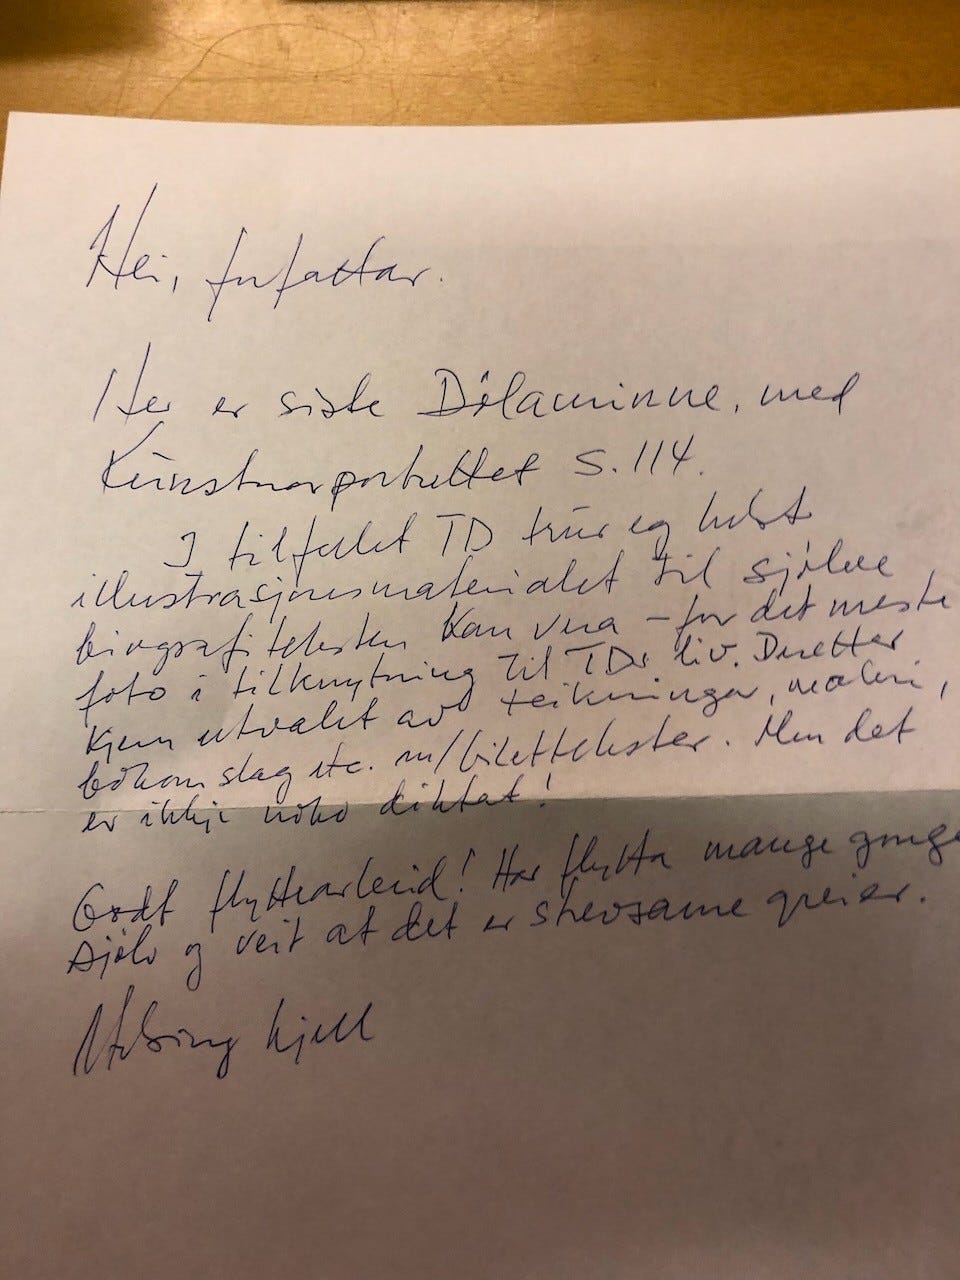 Hei, forfattar.
Her er siste Dølaminne, med
Kunstnarportrettet s. 114.
I tilfellet TD trur eg helst
illustrasjonsmaterialet til sjølve
biografiteksten kan vera – for det meste
foto i tilknytning til TDs liv. Deretter
kjem utvalet av teikningar, maleri,
bokomslag etc. m/bilettekster. Men det
er ikkje noko diktat!
Godt flyttearbeid! Har flytta mange gonge
sjølv og veit at det er strevsame greier.
Helsing Kjell